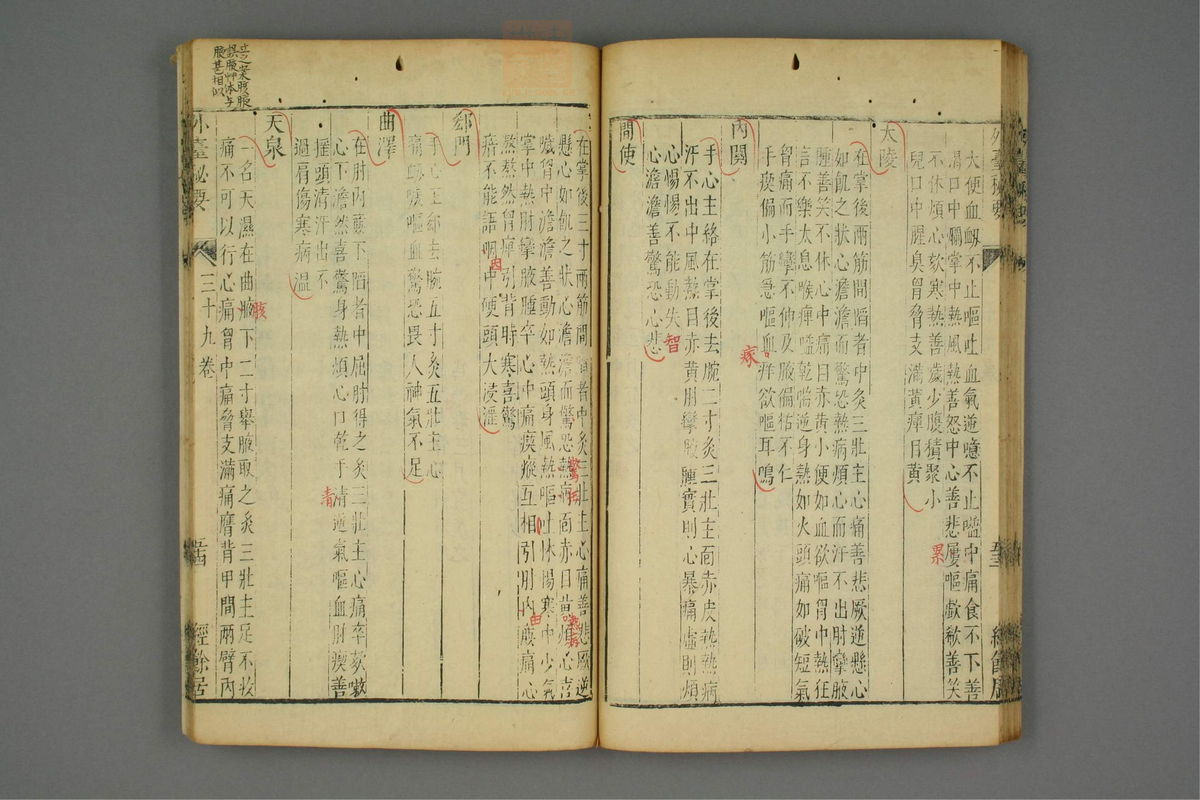 大便血衂不止嘔吐血氣逆噫不止嗌中痛食不下善
渴口中爛掌中熱風熱善怒中心善悲屢嘔歔欷善笑
不休煩心欬寒熱善
少腹積聚小
兒口中腥臭胷脅支滿黃癉目黃
大陵
在掌後兩筋間䧟者中灸三壯主心痛善悲厥逆懸心
如飢之狀心澹澹而驚恐熱病煩心而汗不出肘攣腋
腫善笑不休心中痛目赤黃小便如血欲嘔胷中熱狂
言不樂太息喉痺嗌乾喘逆身熱如火頭痛如破短氣
胷痛而手攣不伸及腋偏枯不仁
手瘈偏小筋急嘔血
欲嘔耳鳴
內關
手心主絡在掌後去腕二寸灸三壯主面赤皮熱熱病
汗不出中風熱目赤黃肘攣腋腫實則心暴痛虛則煩
心惕惕不能動失智
間使
心澹澹善驚恐心悲
在掌後三寸兩筋間䧟者中灸三壯主心痛善悲厥逆
懸心如飢之狀心澹澹而驚恐熱病面赤目黃煩心喜
噦胷中澹澹善動如熱頭身風熱嘔吐怵惕寒中少氣
掌中熱肘攣腋腫卒心中痛瘈瘲互相引肘內廉痛心
熬熬然胷痺引背時寒喜驚
瘖不能語咽中哽頭大浸淫
郄門
手心主郄去腕五寸灸五壯主心
痛衂噦嘔血驚恐畏人神氣不足
曲澤
在肘內廉下䧟者中屈肘得之灸三壯主心痛卒欬噦
心下澹然喜驚身熱煩心口乾手清逆氣嘔血肘瘈善
搖頭清汗出不
過肩傷寒病溫
天泉
一名天濕在曲腋下二寸舉腋取之灸三壯主足不收
痛不可以行心痛胷中痛脅支滿痛膺背甲間兩臂內
外臺秘要
三十九卷
五四
經餘居